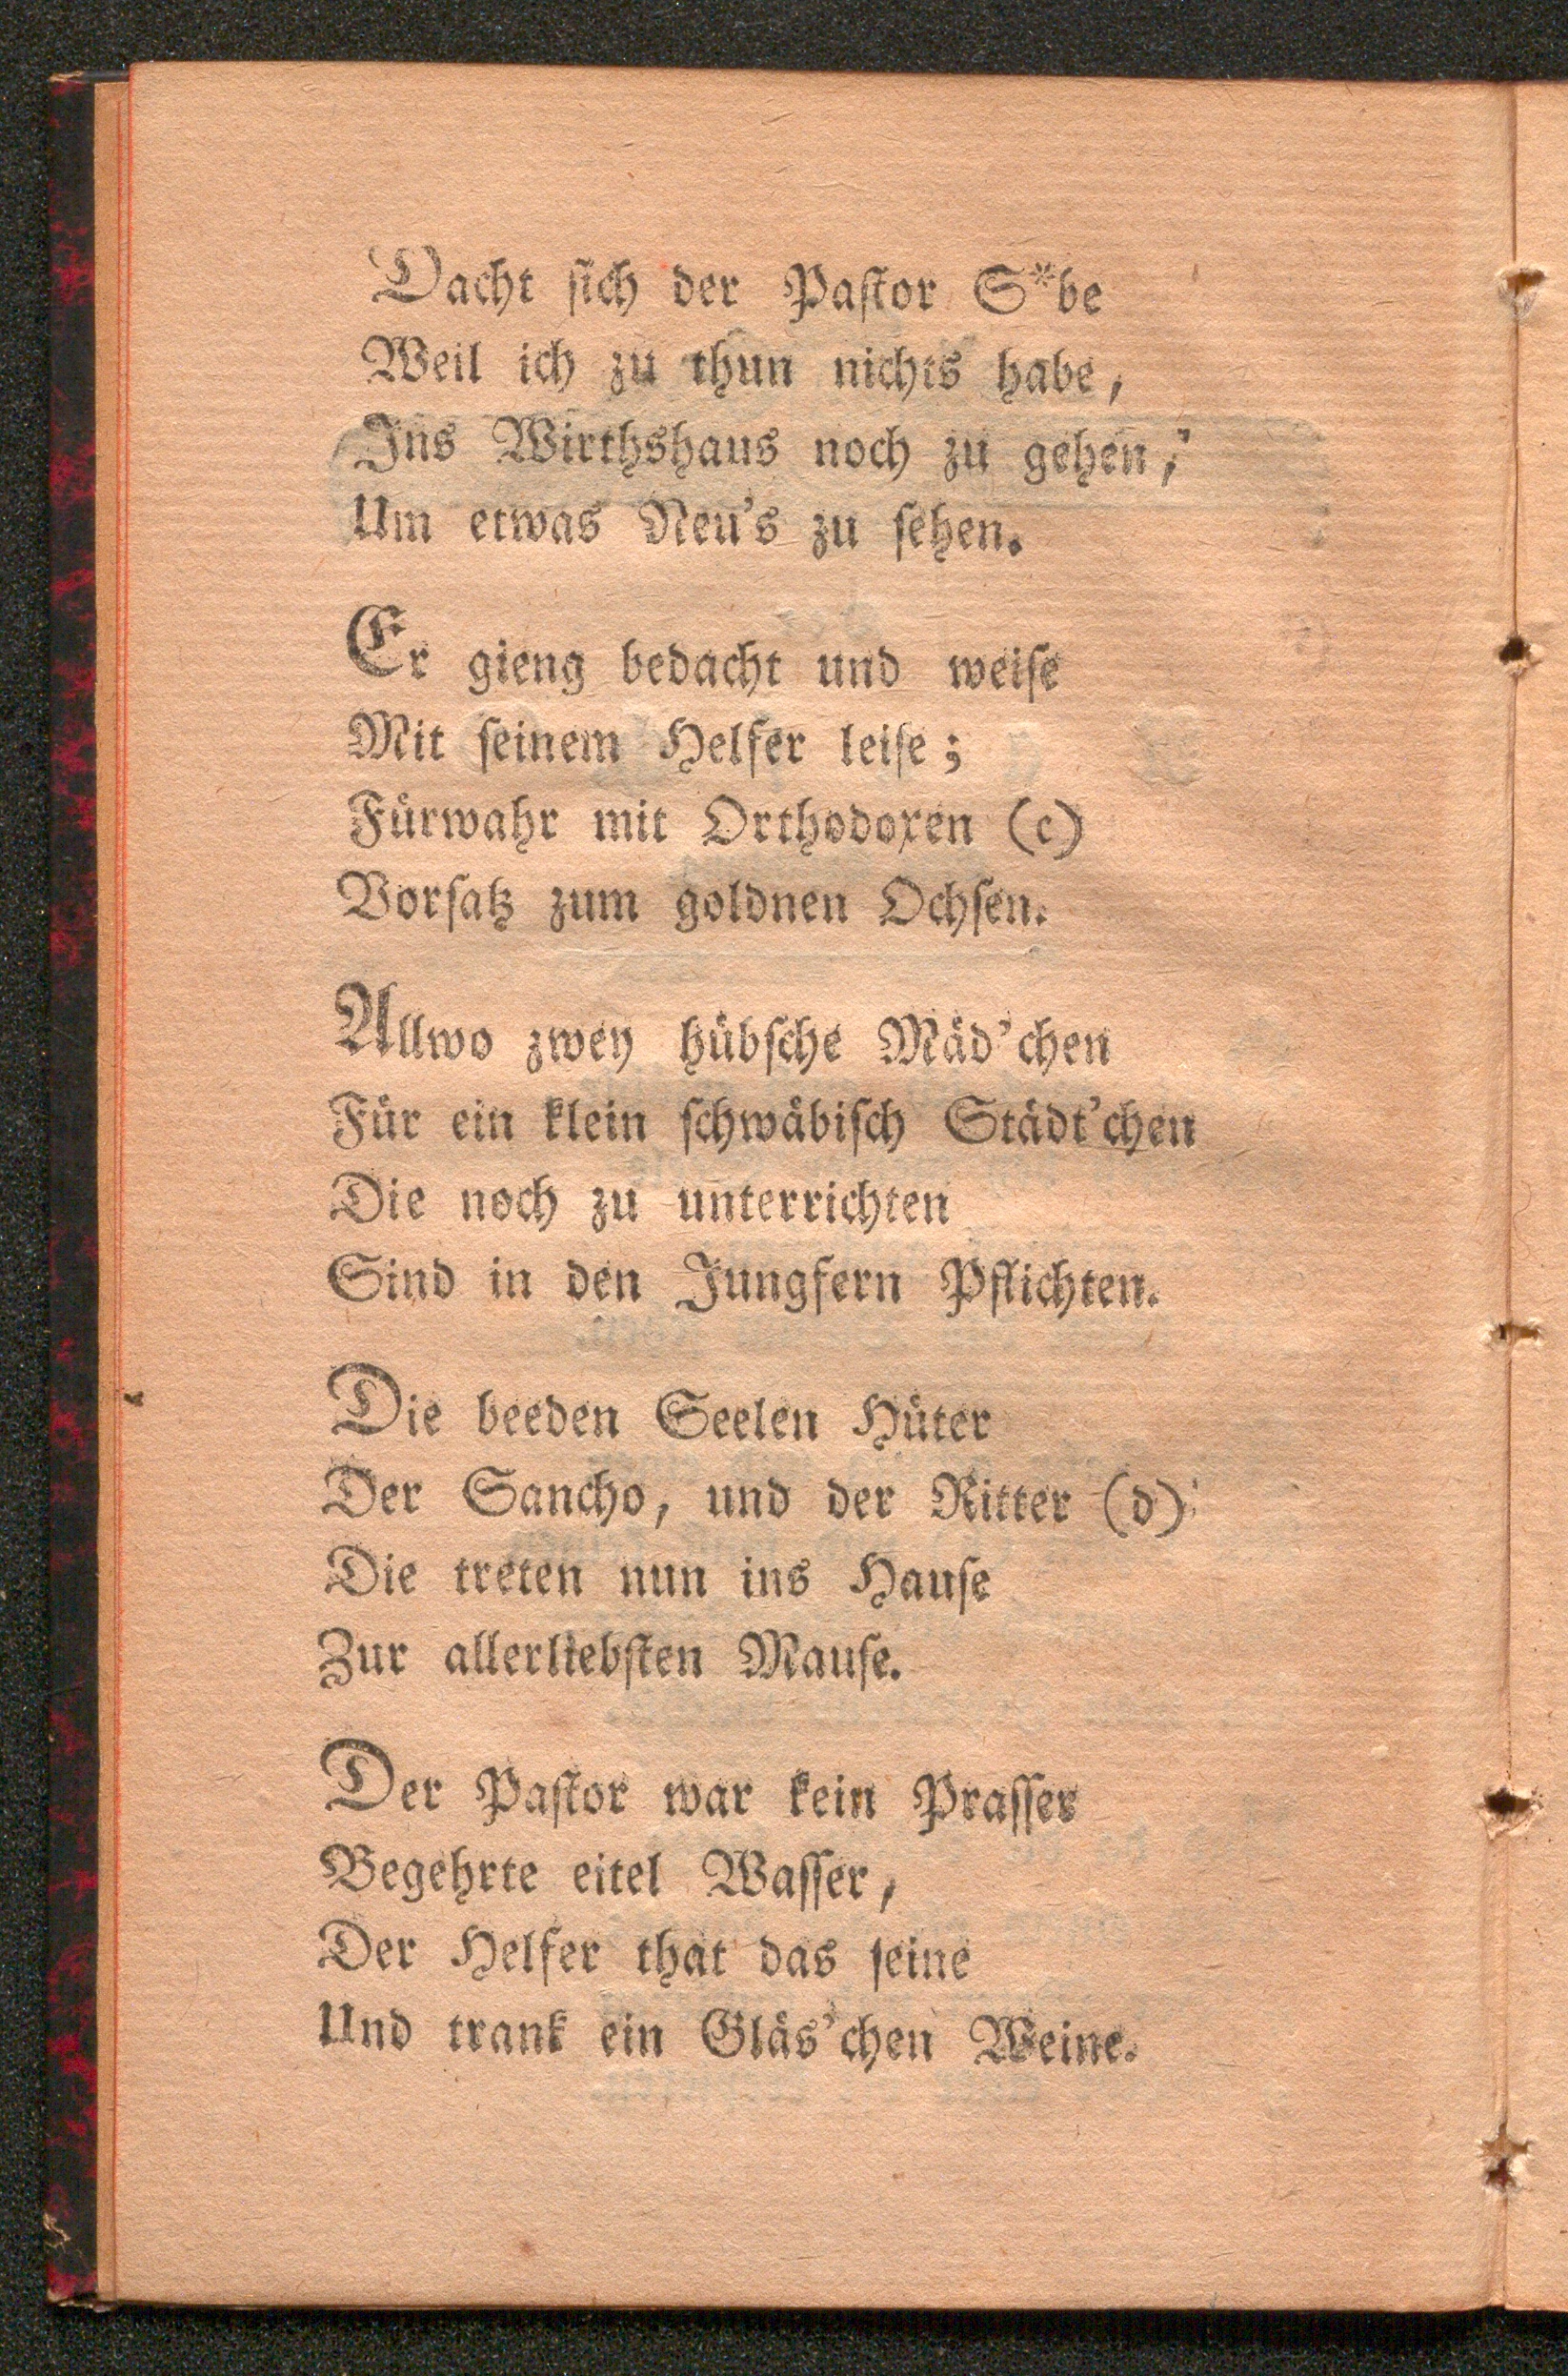 Dacht ſich der Paſtor S*be
Weil ich zu thun nichts habe,
Ins Wirthshaus noch zu gehen,
Um etwas Neu's zu ſehen.
Er gieng bedacht und weiſe
Mit ſeinem Helfer leiſe;
Fürwahr mit Orthodoxen (c)
Vorſatz zum goldnen Ochſen.
Allwo zwey hübſche Mäd'chen
Für ein klein ſchwäbiſch Städt'chen
Die noch zu unterrichten
Sind in den Jungfern Pflichten.
Die beeden Seelen Hüter
Der Sancho, und der Ritter (d)
Die treten nun ins Hauſe
Zur allerliebſten Mauſe.
Der Paſtor war kein Praſſer
Begehrte eitel Waſſer,
Der Helfer that das ſeine
Und trank ein Gläs'chen Weine.